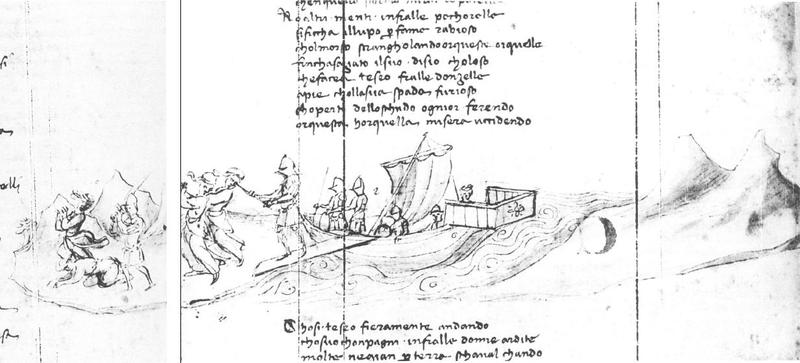 No altri menti infralle pechorelle
sificcha illupo p fame rabioso
cholmorso strangholando orquesta orquella
finchasaziato ilsuo disio choloso
chefacea teseo fralle donzelle
apie chollasua spada furioso
choperto delloschudo ognior ferendo
orquesta horquella misera uccidendo
Chosi teseo fieramente andando
chosuo chonpagni infralle donne ardite
molte negian p terra schaval chando